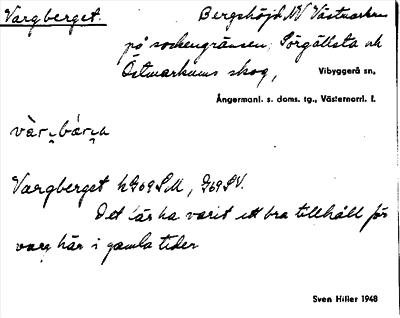 Vargberget.
Bergshöjd NV Västmarken
på sockengränsen; Sörgällsta och
Östmarkums skog,
Vibyggerå sn,
Ångermanl. s. doms. tg., Västernorrl. l.
Vargberget hGo9SM, G69SV.
Det lär ha varit ett bra tillhåll för
varg här i gamla tider
Sven Hiller 1948